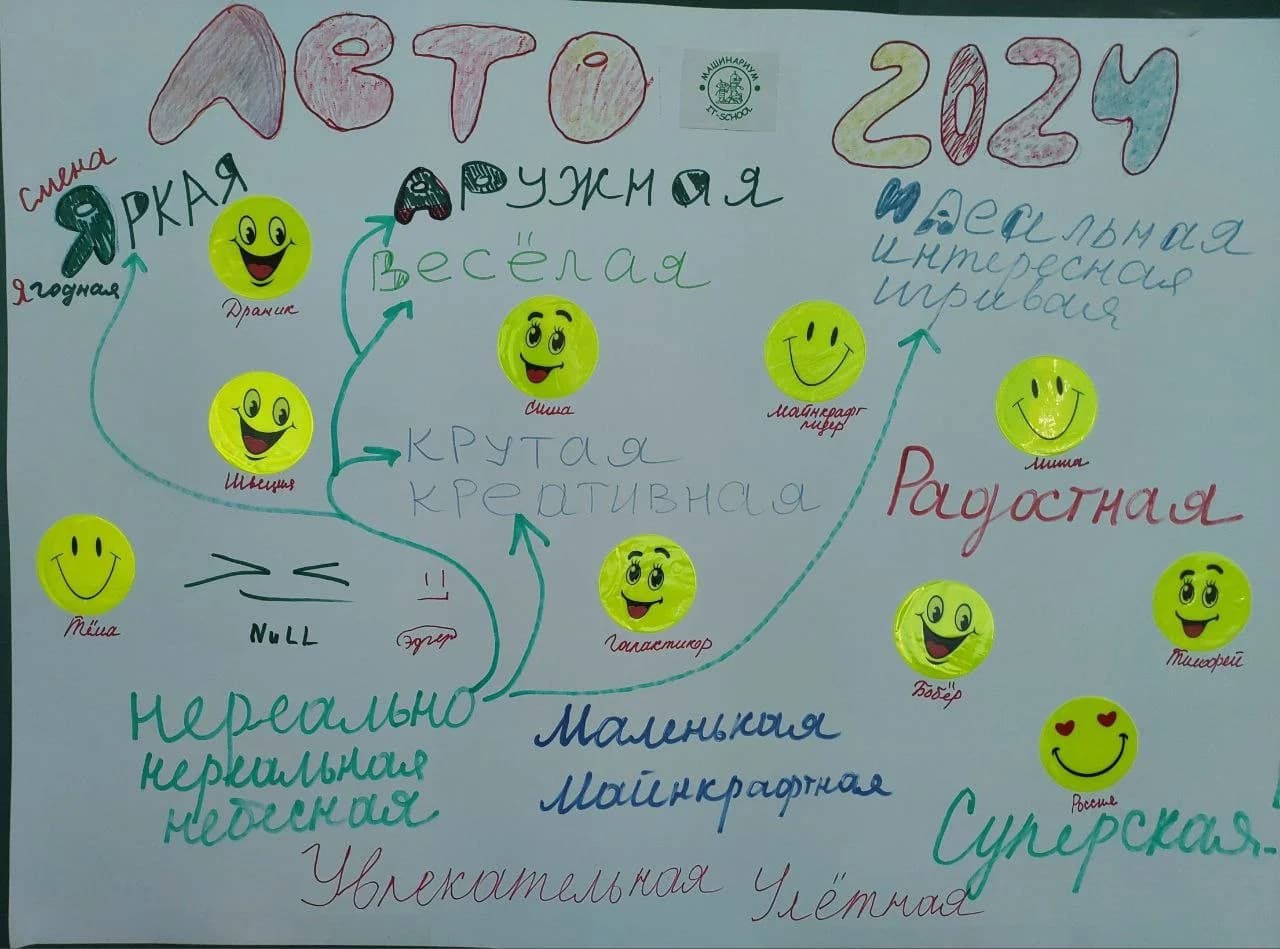 ЛеТО 2024
МАШИНАРИУМ
IT-SCHOOL
смена
ЯРКАЯ
Ягодная
ДРУЖНАЯ
Весёлая
идеальная
интересная
игривая
Драник
Майнкрафт
лидер
Миша
Швеция
КРУТАЯ
креативная
Радостная
Тёма
NuLL
Эдгер
Галактикор
Бобёр
Тимофей
нереально
нереальная
небесная
Маленькая
Майнкрафтная
Россия
Суперская
Увлекательная Улётная